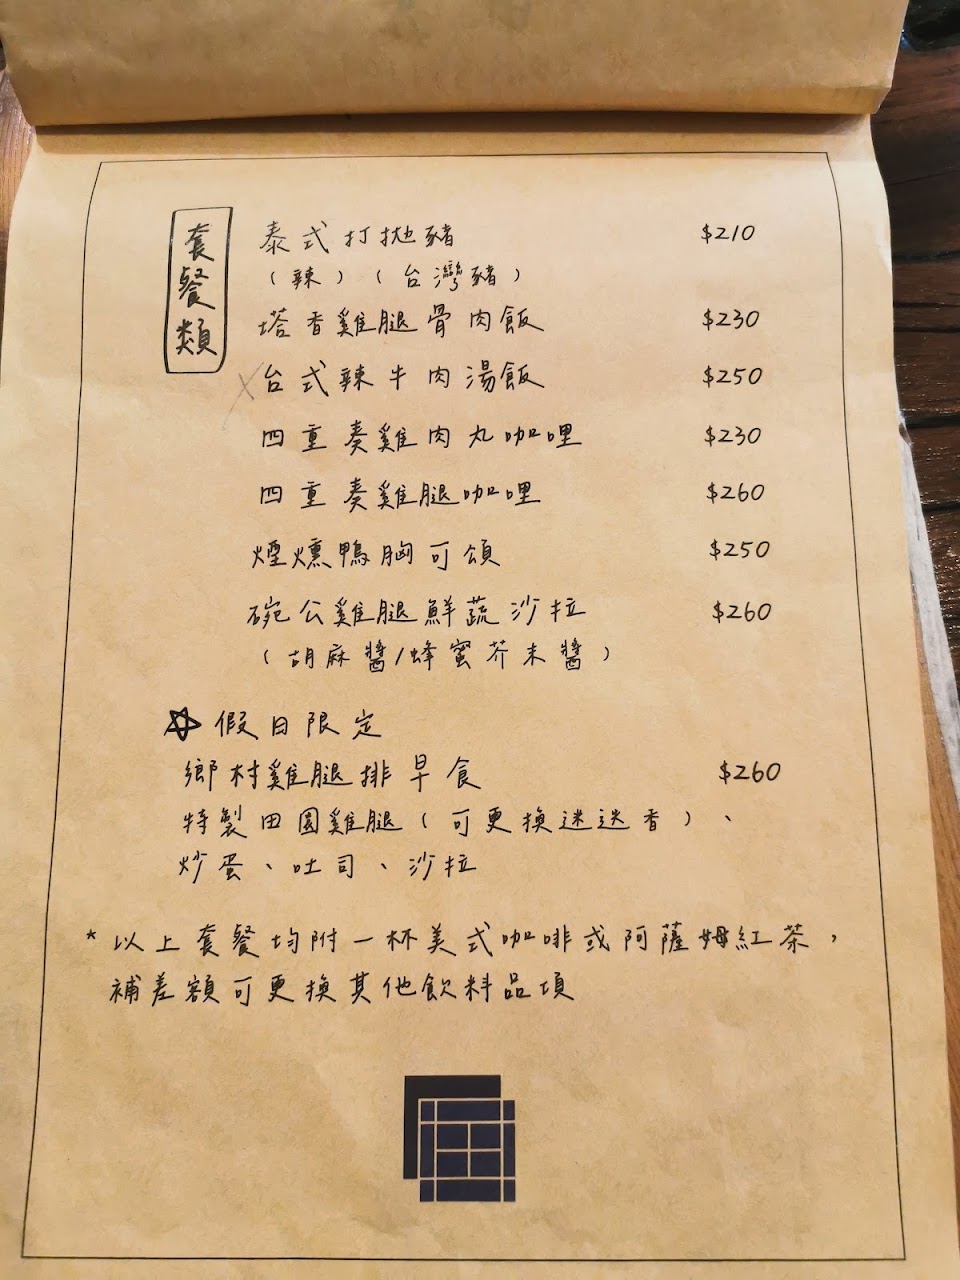 套餐類
泰式打拋豬 $210
（辣）（台灣豬）
塔香雞腿骨肉飯 $230
台式辣牛肉湯飯 $250
四重奏雞肉丸咖哩 $230
四重奏雞腿咖哩 $260
煙燻鴨胸可頌 $250
碗公雞腿鮮蔬沙拉 $260
（胡麻醬/蜂蜜芥末醬）
☆假日限定
鄉村雞腿排早食 $260
特製田園雞腿（可更換迷迭香）、
炒蛋、吐司、沙拉
*以上套餐均附一杯美式咖啡或阿薩姆紅茶，
補差額可更換其他飲料品項